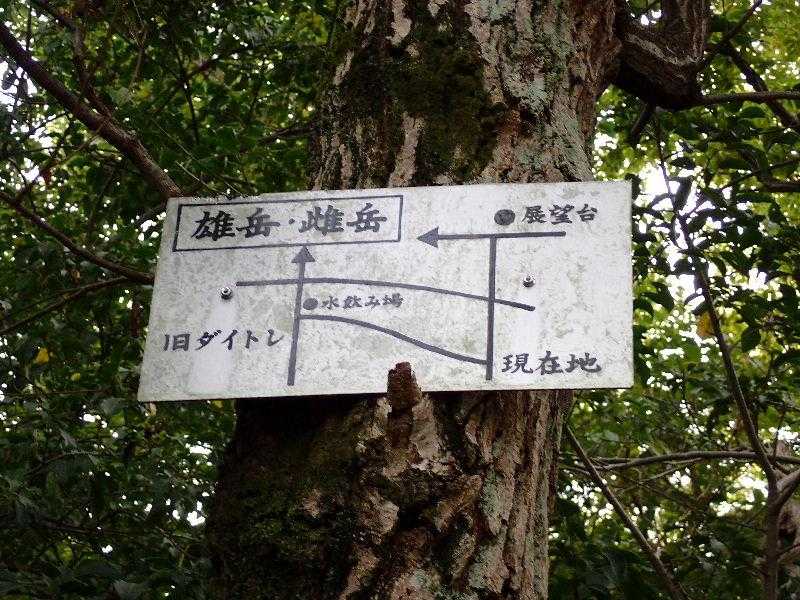 雄岳・雌岳
展望台
水飲み場
旧ダイトレ
現在地